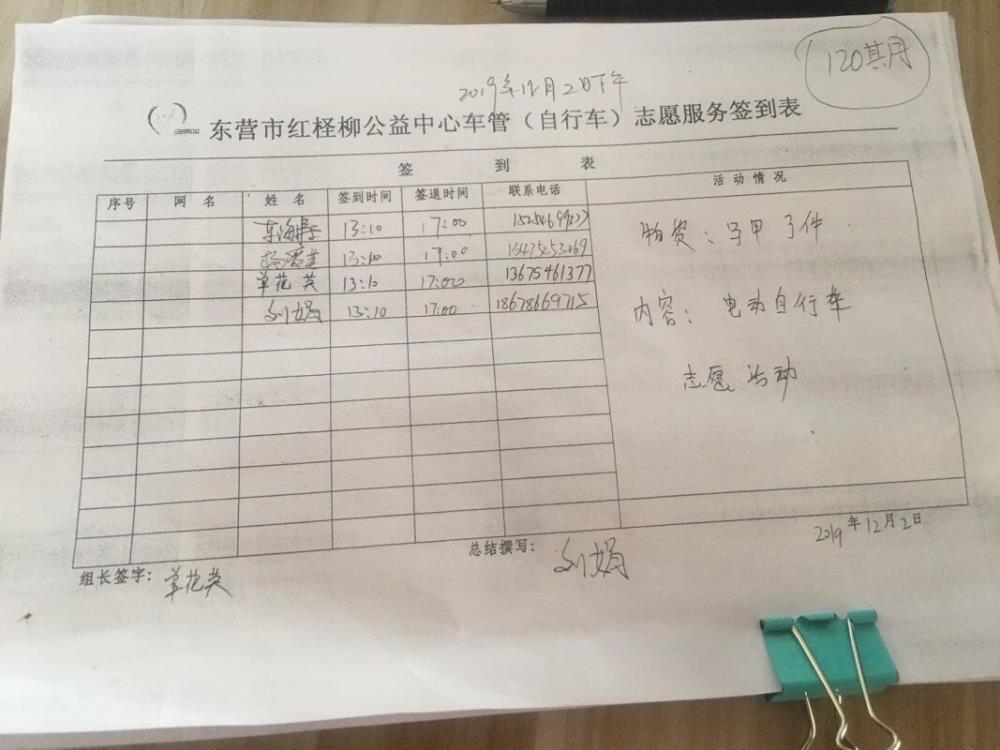 120期
2019年12月2日下午
东营市红柽柳公益中心车管（自行车）志愿服务签到表
签 到 表
序号 网 名 姓 名 签到时间 签退时间 联系电话 活动情况
13:10 17:00
13:10 17:00 13475453069
单花英 13:10 17:00 13675461377
刘娟 13:10 17:00 18678669715
物资：马甲 了件
内容：电动自行车
志愿活动
2019年12月2日
组长签字：单花英
总结撰写：刘娟